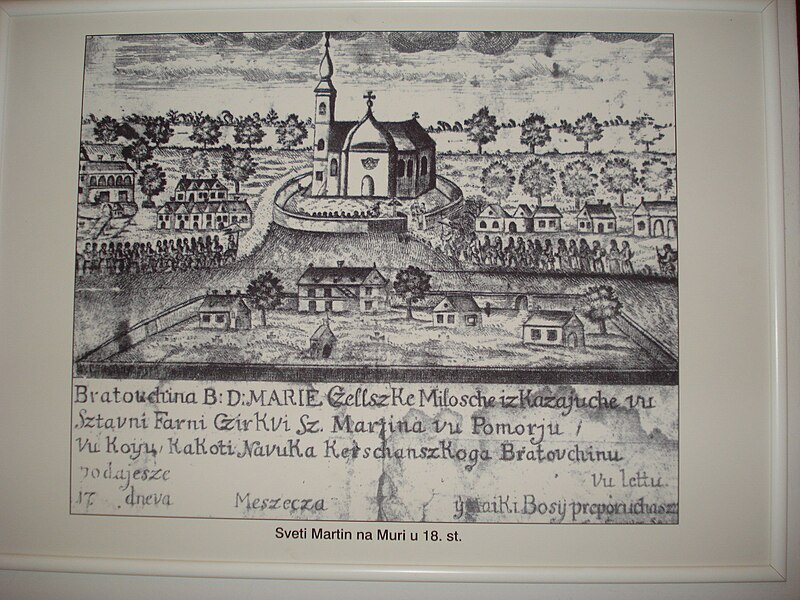 Bratovchina B: D: MARIE Czellszke Milosche iz Kazajuche vu
Sztavni Farni Czirkvi Sz. Martina vu Pomorju /
Vu Koyu, kakoti Navuka Kerschanszkoga Bratovchinu
podajesze vu lettu
17 dneva Meszecza y Maiki Bosij preporuchasz
Sveti Martin na Muri u 18. st.